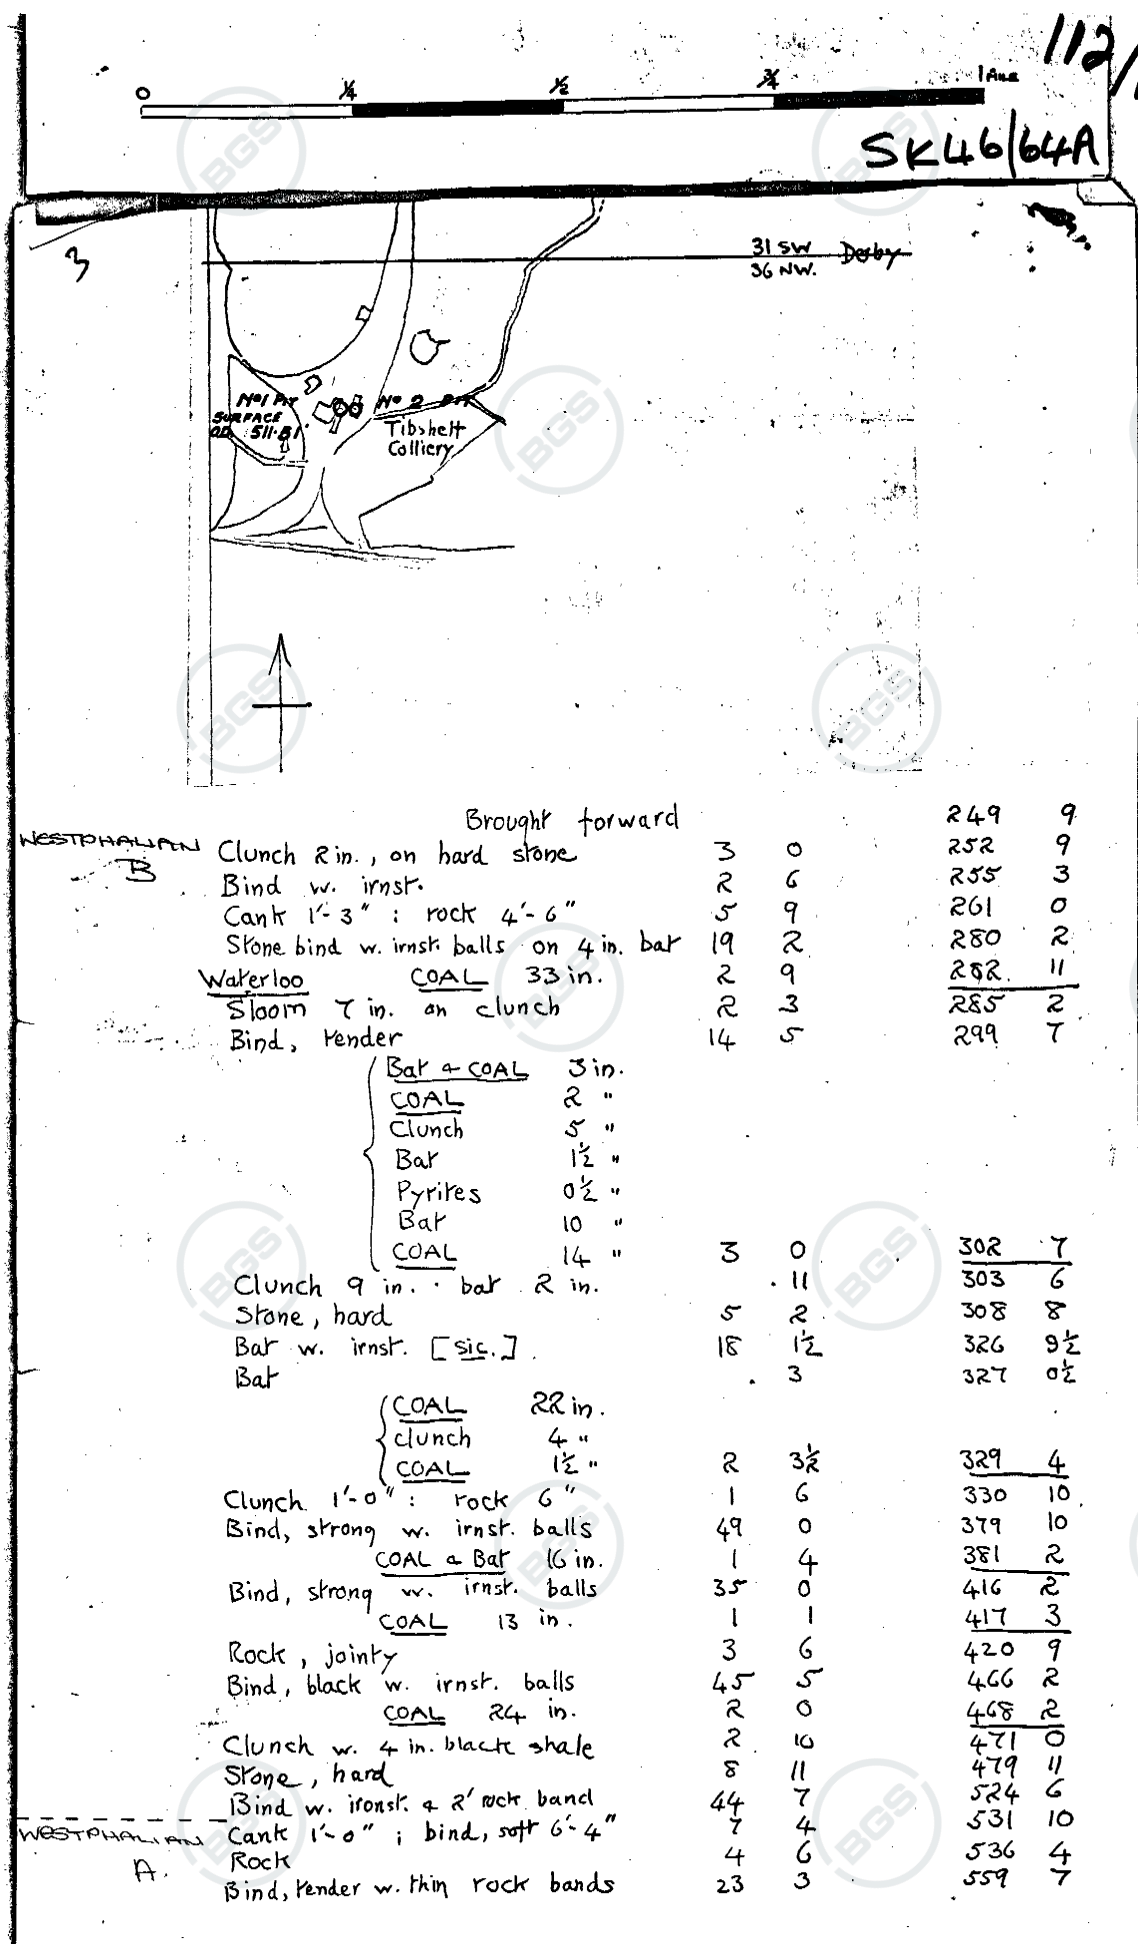 112/
0 ¼ ½ ¾ 1 Mile
SK46/64A
3
31 SW Derby
36 NW.
No 1 Pit No 2 Pit
SURFACE
OD 511.81'
Tibshelf
Colliery
Brought forward 249 9
WESTPHALIAN
B
Clunch 2 in., on hard stone 3 0 252 9
Bind w. irnst. 2 6 255 3
Cank 1'-3" : rock 4'-6" 5 9 261 0
Stone bind w. irnst. balls on 4 in. bat 19 2 280 2
Waterloo COAL 33 in. 2 9 282 11
Sloom 7 in. on clunch 2 3 285 2
Bind, tender 14 5 299 7
Bat & COAL 3 in.
COAL 2 "
Clunch 5 "
Bat 1½ "
Pyrites 0½ "
Bat 10 "
COAL 14 " 3 0 302 7
Clunch 9 in. · bat 2 in. 11 303 6
Stone, hard 5 2 308 8
Bat w. irnst. [sic.] 18 1½ 326 9½
Bat 3 327 0½
COAL 22 in.
Clunch 4 "
COAL 1½ " 2 3½ 329 4
Clunch 1'-0" : rock 6" 1 6 330 10
Bind, strong w. irnst. balls 49 0 379 10
COAL & Bat 16 in. 1 4 381 2
Bind, strong w. irnst. balls 35 0 416 2
COAL 13 in. 1 1 417 3
Rock, jointy 3 6 420 9
Bind, black w. irnst. balls 45 5 466 2
COAL 24 in. 2 0 468 2
Clunch w. 4 in. black shale 2 10 471 0
Stone, hard 8 11 479 11
Bind w. ironst. & 2' rock band 44 7 524 6
WESTPHALIAN
A.
Cank 1'-0" ; bind, soft 6'-4" 7 4 531 10
Rock 4 6 536 4
Bind, tender w. thin rock bands 23 3 559 7